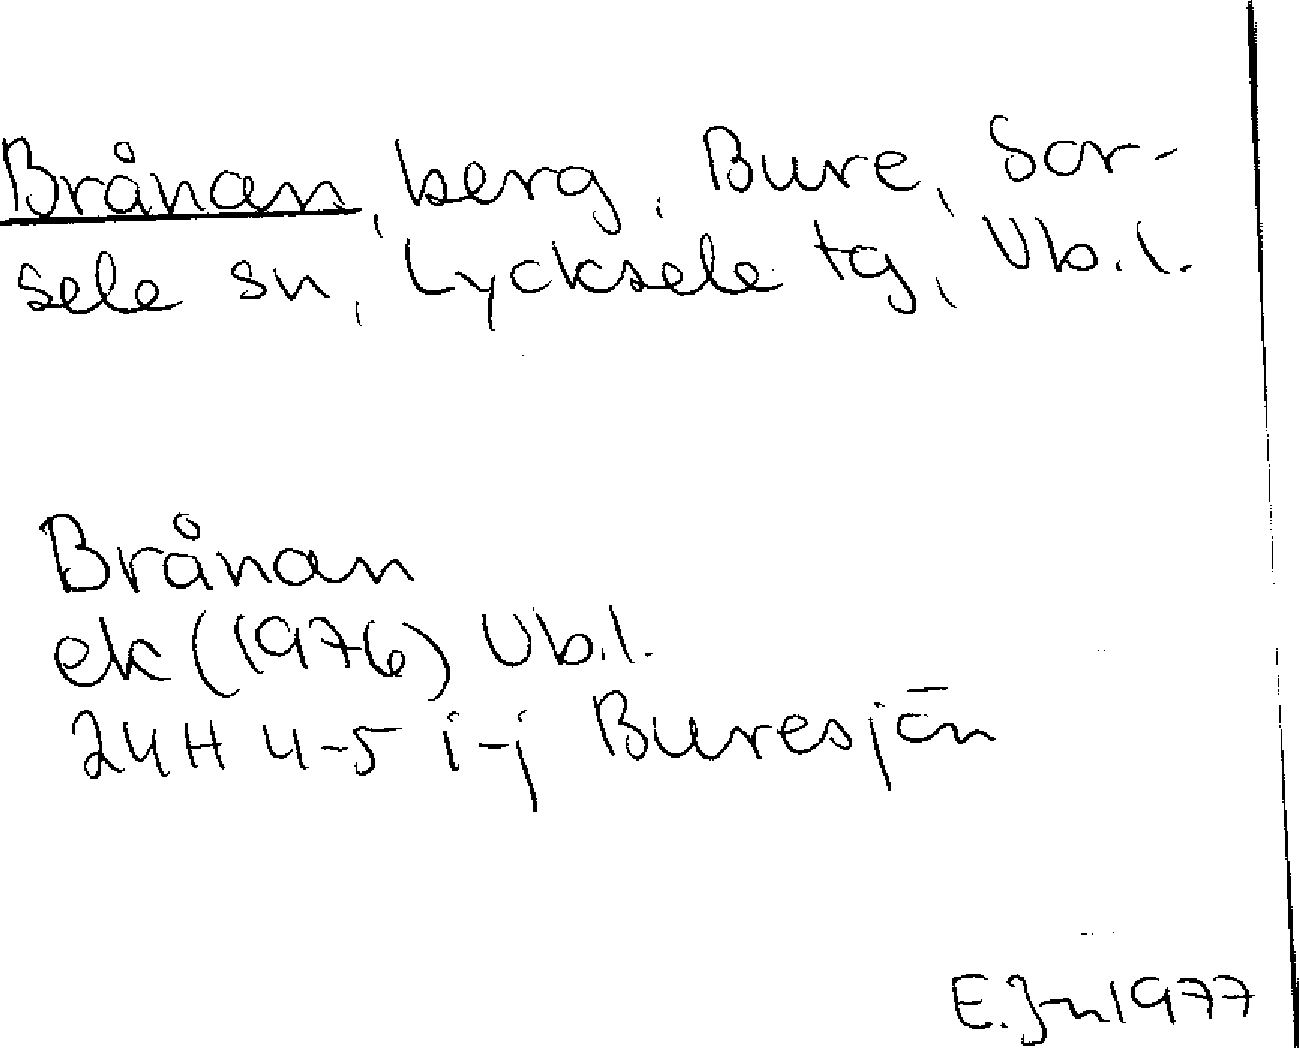 Brånan, berg, Bure, Sor-
sele sn, Lycksele tg, Vb.l.
Brånan
ek (1976) Vb.l.
24H 4-5 i-j Buresjön
E. Jn 1977